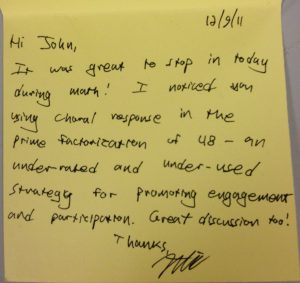 12/9/11
Hi John,
It was great to stop in today
during math! I noticed you
using choral response in the
prime factorization of 48 – an
under-rated and under-used
strategy for promoting engagement
and participation. Great discussion too!
Thanks,